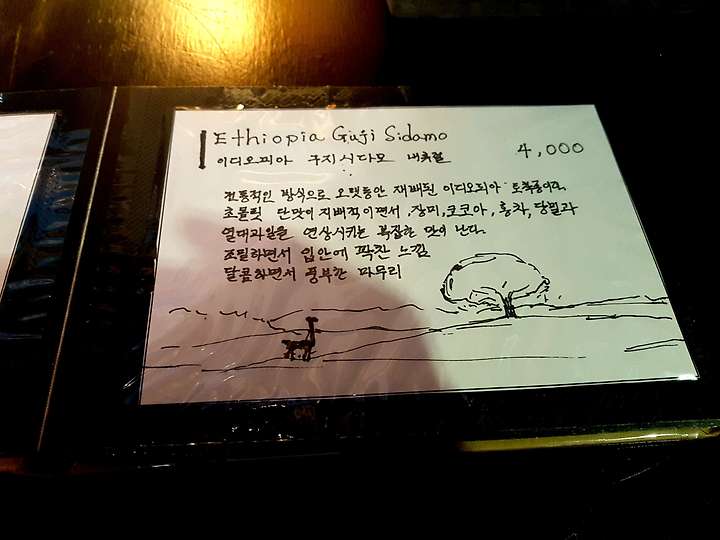 Ethiopia Guji Sidamo
4,000
이디오피아 구지시다모 내추럴
전통적인 방식으로 오랫동안 재배된 이디오피아 토착종이다.
초콜릿 단맛이 지배적이면서, 장미, 코코아, 홍차, 당밀과
열대과일을 연상시키는 복잡한 맛이 난다.
조밀하면서 입안에 꽉찬 느낌
달콤하면서 풍부한 마무리